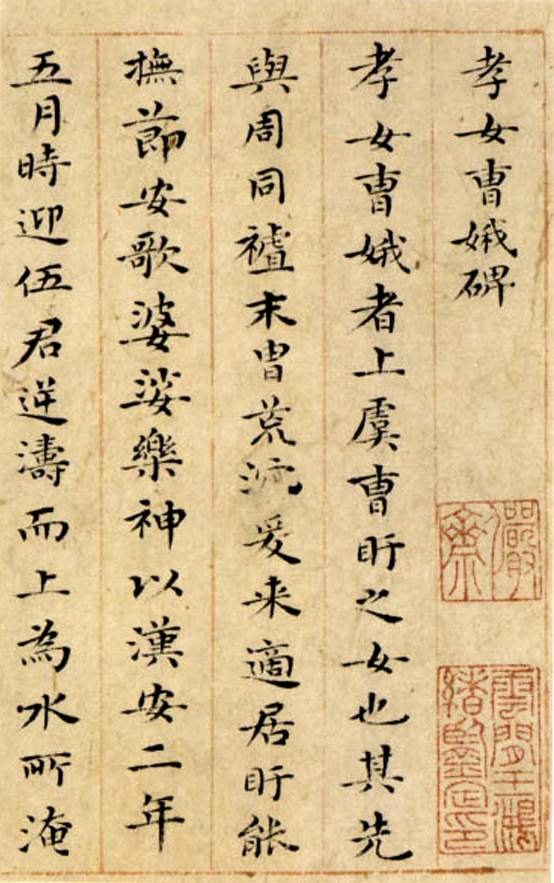 孝女曹娥碑
孝女曹娥者上虞曹盱之女也其先
與周同禮末胄荒沉爰来適居盱能
撫節安歌婆娑樂神以漢安二年
五月時迎伍君逆濤而上為水所淹
儼齋
雲間王鴻緒鑒定印